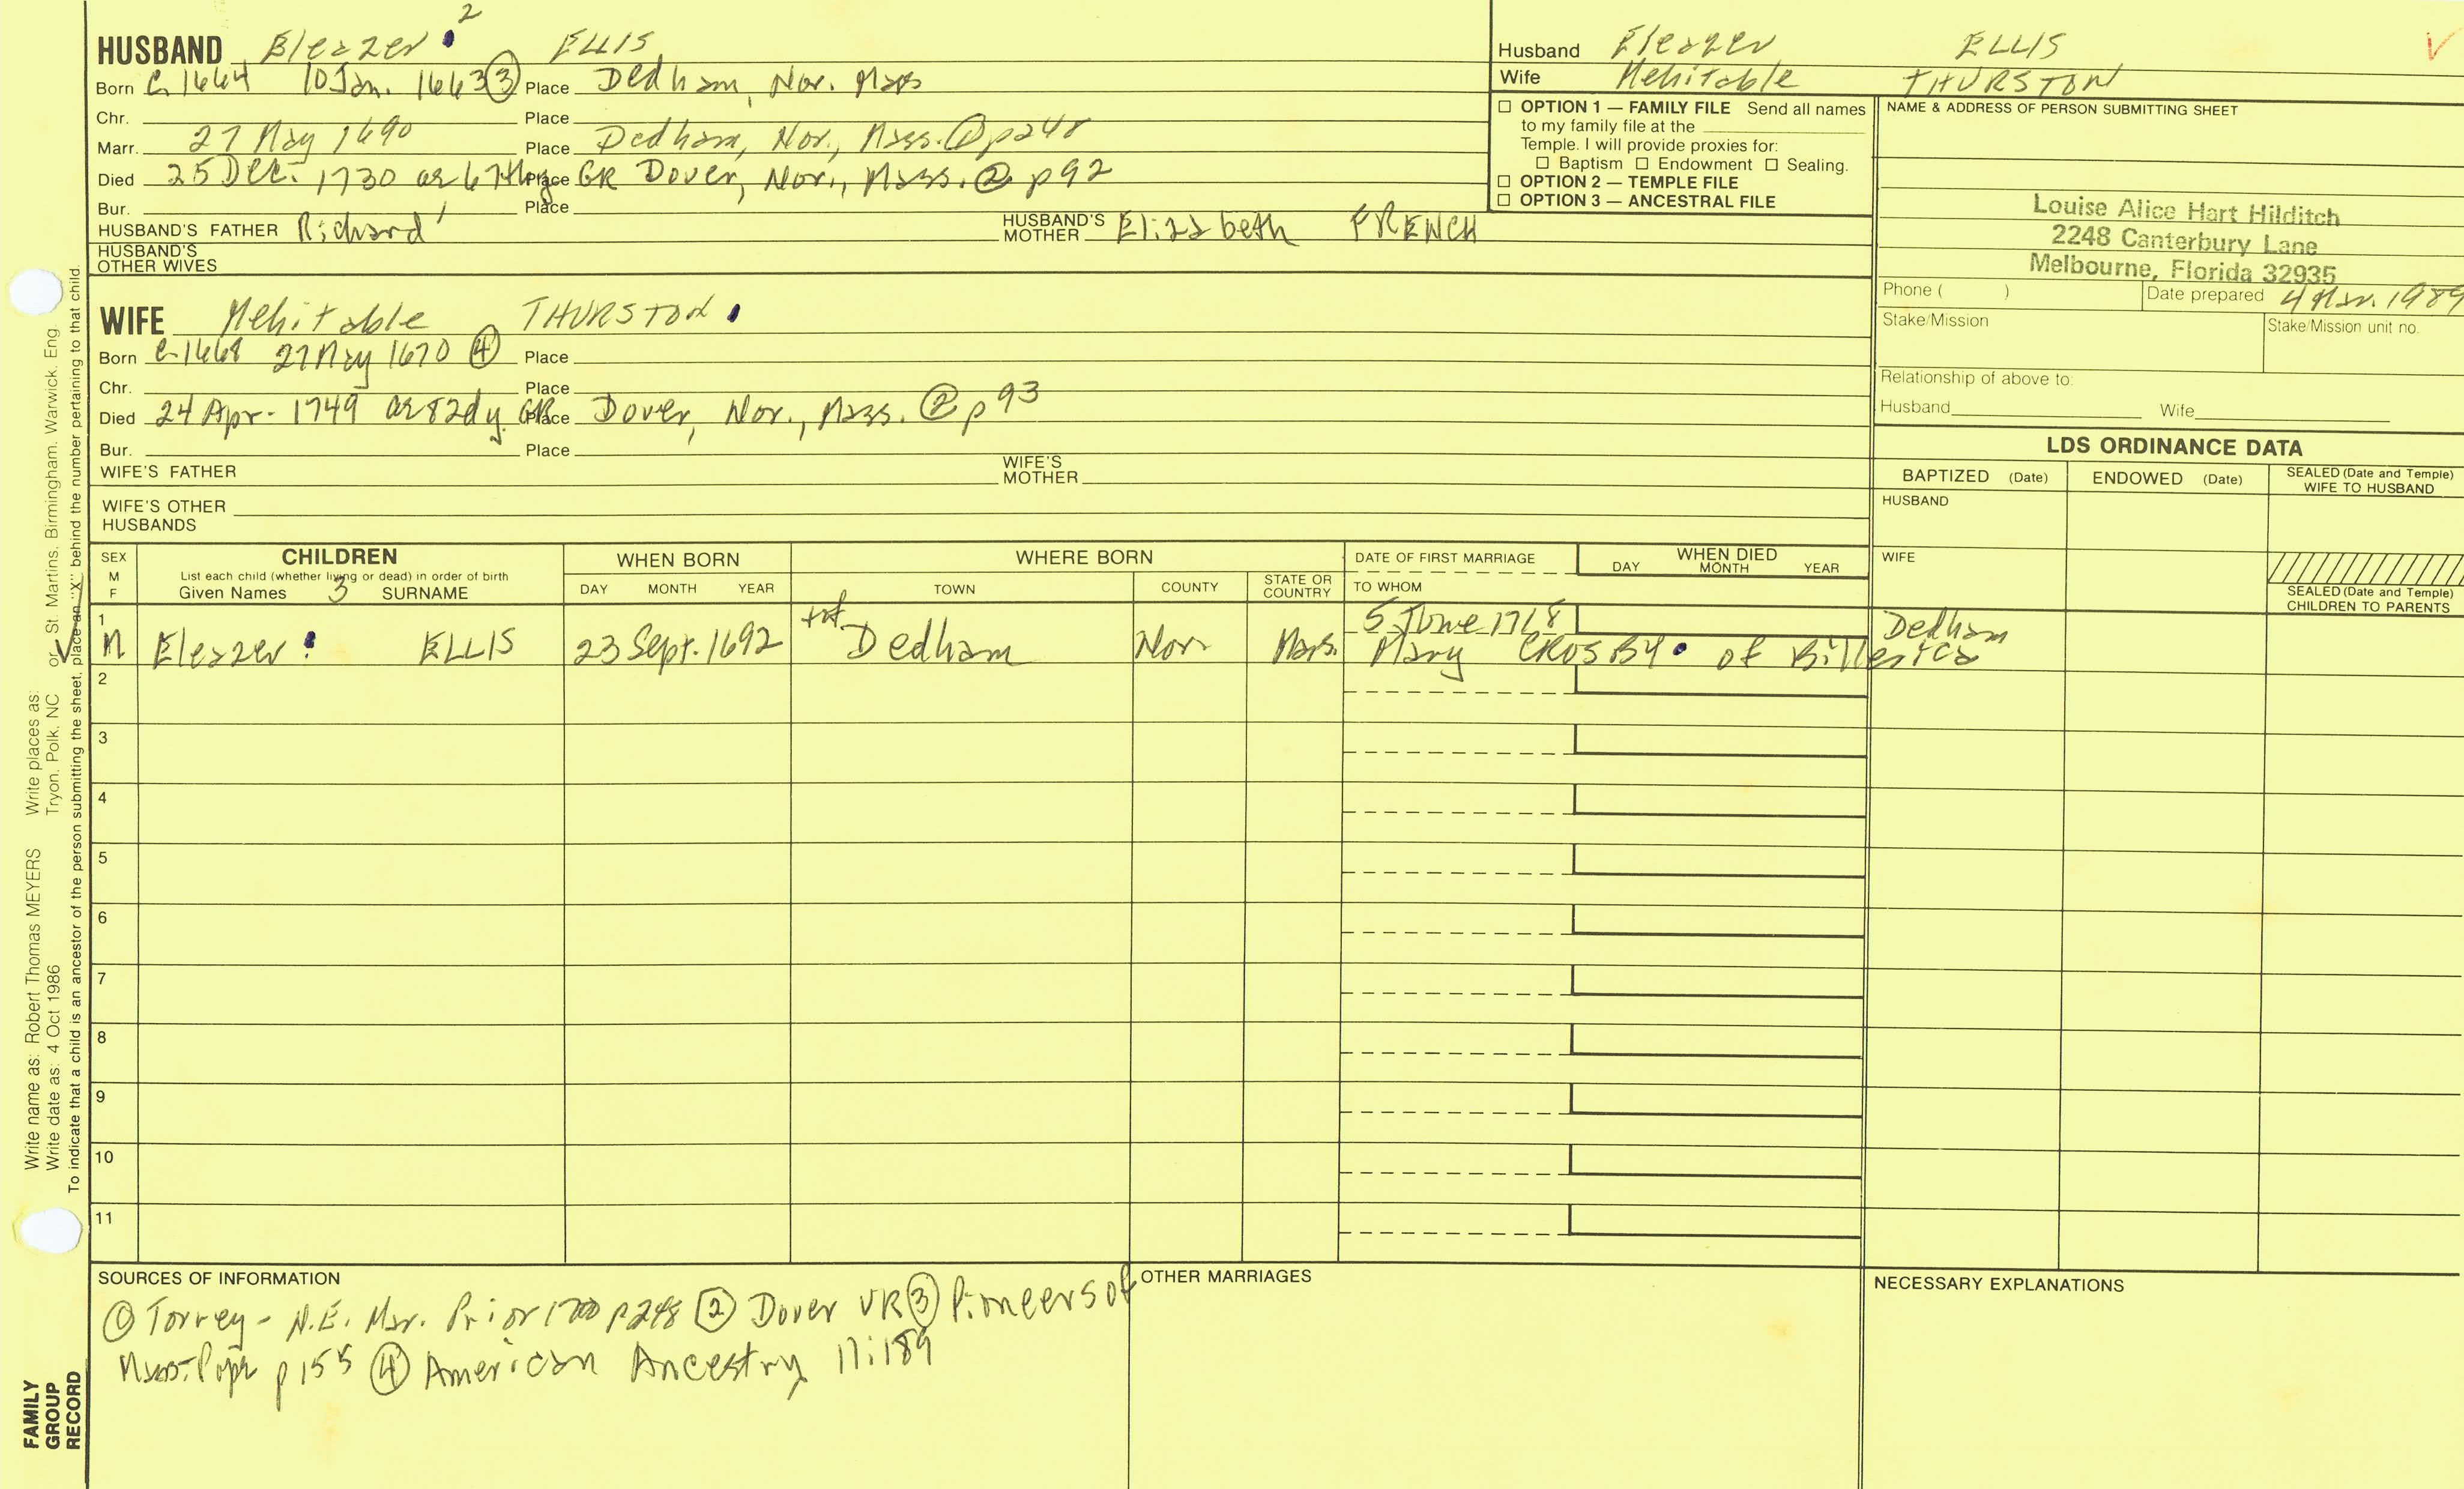 2
HUSBAND Eleazer ELLIS
Born c 1664 10 Jan. 1663 ③ Place Dedham, Nor. Mass
Chr. Place
Marr. 27 May 1690 Place Dedham, Nor., Mass. ① p248
Died 25 Dec. 1730 ae 67thy Place GR Dover, Nor., Mass. ② p92
Bur. Place
HUSBAND'S FATHER Richard 1 HUSBAND'S MOTHER Elizabeth FRENCH
HUSBAND'S OTHER WIVES
WIFE Mehitable THURSTON
Born c 1668 27 May 1670 ④ Place
Chr. Place
Died 24 Apr. 1749 ae 82dy. GR Place Dover, Nor., Mass. ② p93
Bur. Place
WIFE'S FATHER WIFE'S MOTHER
WIFE'S OTHER HUSBANDS
Husband Eleazer ELLIS V
Wife Mehitable THURSTON
☐ OPTION 1 — FAMILY FILE Send all names
to my family file at the
Temple. I will provide proxies for:
☐ Baptism ☐ Endowment ☐ Sealing.
☐ OPTION 2 — TEMPLE FILE
☐ OPTION 3 — ANCESTRAL FILE
NAME & ADDRESS OF PERSON SUBMITTING SHEET
Louise Alice Hart Hilditch
2248 Canterbury Lane
Melbourne, Florida 32935
Phone ( ) Date prepared 4 Mar. 1989
Stake/Mission Stake/Mission unit no.
Relationship of above to:
Husband Wife
LDS ORDINANCE DATA
BAPTIZED (Date) ENDOWED (Date) SEALED (Date and Temple) WIFE TO HUSBAND
HUSBAND
WIFE
SEALED (Date and Temple) CHILDREN TO PARENTS
SEX M F
CHILDREN
List each child (whether living or dead) in order of birth
Given Names 3 SURNAME
WHEN BORN
DAY MONTH YEAR
WHERE BORN
TOWN COUNTY STATE OR COUNTRY
DATE OF FIRST MARRIAGE
TO WHOM
WHEN DIED
DAY MONTH YEAR
1 5 June 1718 Dedham
M Eleazer ELLIS 23 Sept. 1692 Dedham Nor. Mass. Mary CROSBY of Billerica
2
3
4
5
6
7
8
9
10
11
SOURCES OF INFORMATION
① Torrey - N.E. Mar. Prior 1700 p248 ② Dover VR ③ Pioneers of
Mass-Pope p155 ④ American Ancestry 11:189
OTHER MARRIAGES
NECESSARY EXPLANATIONS
Write name as: Robert Thomas MEYERS Write places as:
Write date as: 4 Oct 1986 Tryon, Polk, NC or St. Martins, Birmingham, Warwick, Eng.
To indicate that a child is an ancestor of the person submitting the sheet, place an "X" behind the number pertaining to that child.
FAMILY
GROUP
RECORD